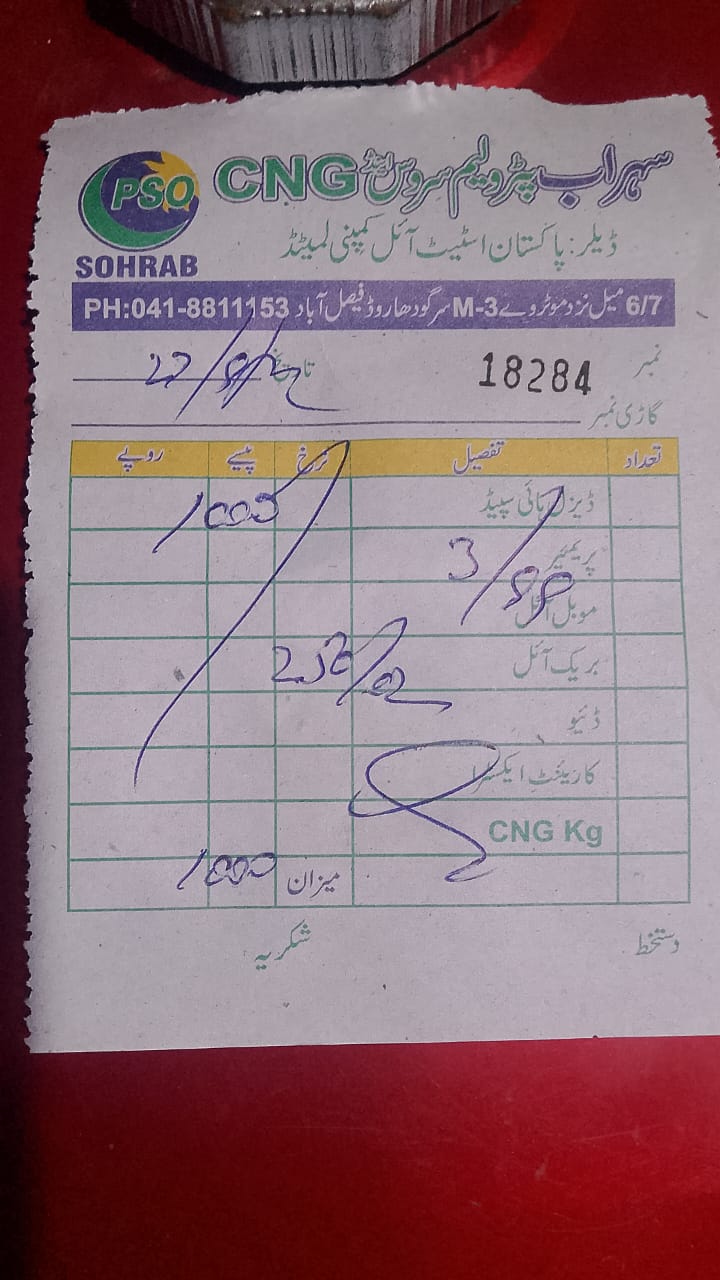 PSO
SOHRAB
سہراب پٹرولیم سروس اینڈ CNG
ڈیلر: پاکستان اسٹیٹ آئل کمپنی لمیٹڈ
6/7 میل نزد موٹروے M-3 سرگودھا روڈ فیصل آباد PH:041-8811153
نمبر 18284 تاریخ
گاڑی نمبر
تعداد تفصیل نرخ پیسے روپے
ڈیزل ہائی سپیڈ 1000
پریمیئر 3/88
موبل آئل
بریک آئل
ڈئیو
کاریئنٹ ایکسٹرا
CNG Kg
میزان 1000
دستخط شکریہ